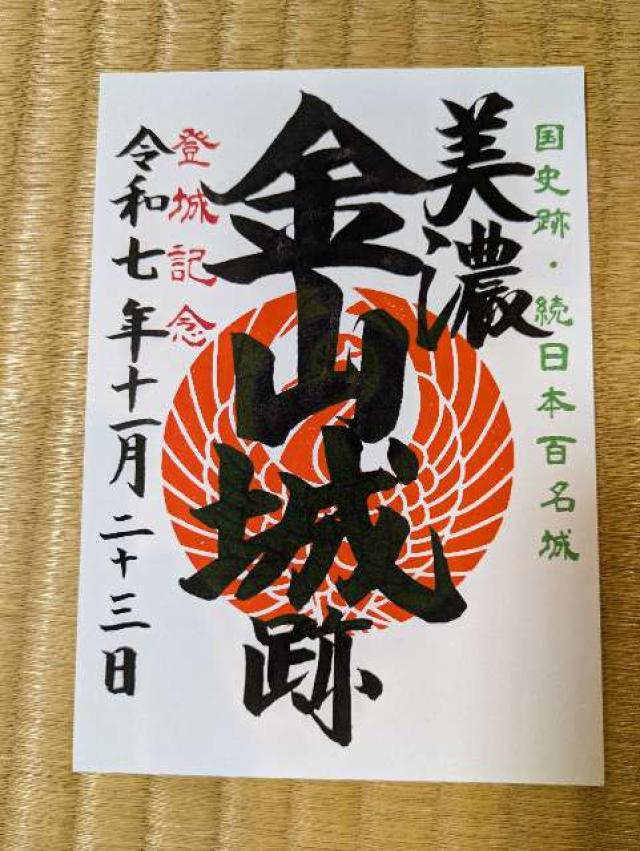 国史跡・続日本百名城
美濃
金山城跡
登城記念
令和七年十一月二十三日